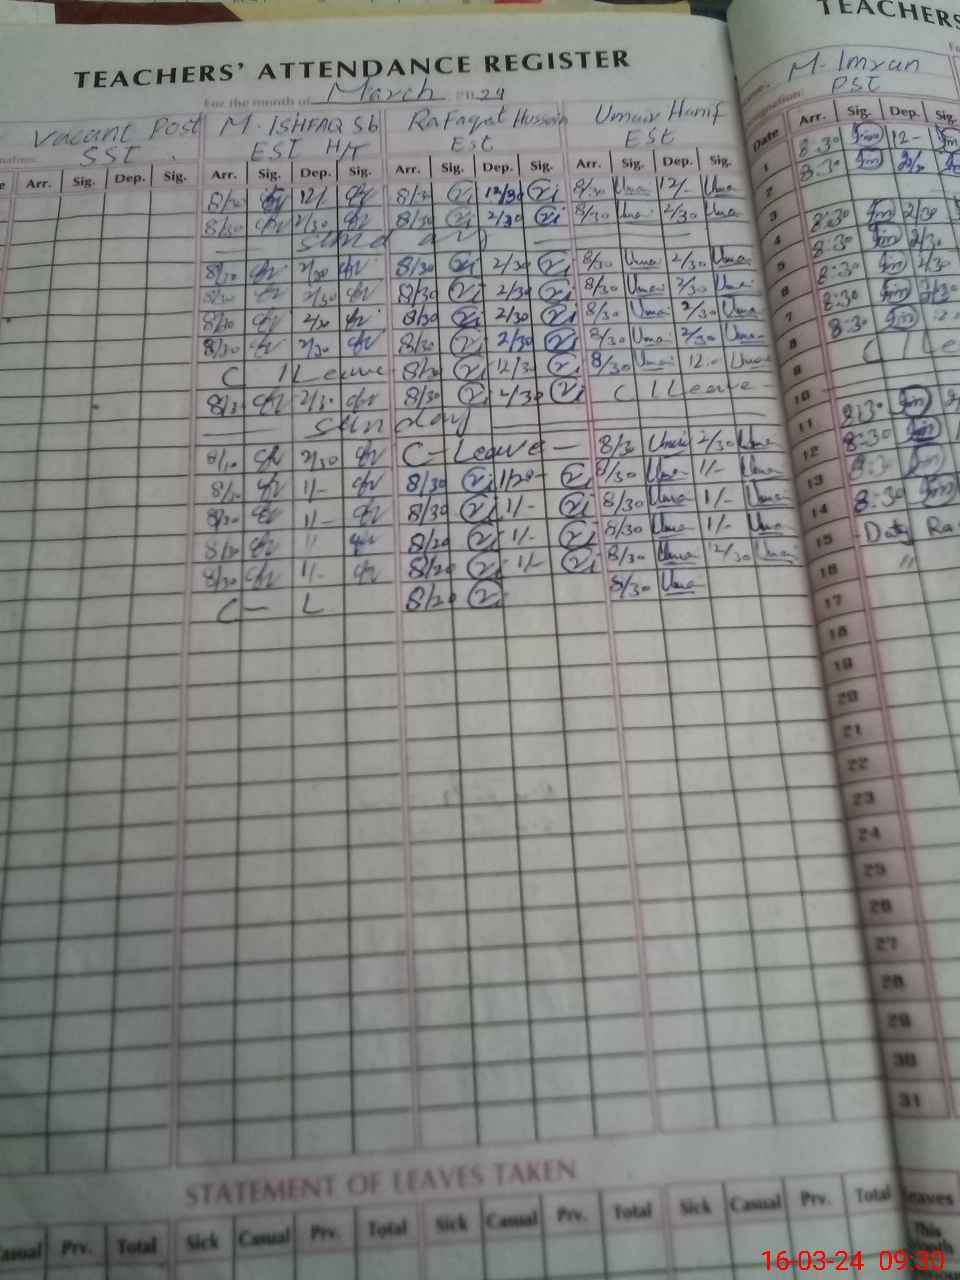 TEACHERS' ATTENDANCE REGISTER
For the month of March 2024
Vacant Post M. ISHFAQ Sb Rafaqat Hussain Umair Hanif
SST EST H/T Est Est
Arr. Sig. Dep. Sig. Arr. Sig. Dep. Sig. Arr. Sig. Dep. Sig. Arr. Sig. Dep. Sig.
8/30 12/- 8/30 12/30 8/30 Uma 12/- Uma
8/30 2/30 8/30 2/30 8/30 Uma 2/30 Uma
Sunday
8/30 2/30 8/30 2/30 8/30 Uma 2/30 Uma
8/30 2/30 8/30 2/30 8/30 Uma 2/30 Uma
8/30 2/30 8/30 2/30 8/30 Uma 2/30 Uma
8/30 2/30 8/30 2/30 8/30 Uma 2/30 Uma
C / Leave 8/30 12/30 8/30 Uma 12- Uma
8/30 2/30 8/30 2/30 C / Leave
Sunday
8/30 2/30 C- Leave - 8/30 Umair 2/30 Uma
8/30 1/- 8/30 8/30 Uma 1/- Uma
8/30 1/- 8/30 1/- 8/30 Uma 1/- Uma
8/30 " 8/30 1/- 8/30 Uma 1/- Uma
8/30 1/- 8/30 1/- 8/30 Uma 12/30 Uma
C- L 8/30 8/30 Uma
STATEMENT OF LEAVES TAKEN
Casual Prv. Total Sick Casual Prv. Total Sick Casual Prv. Total Sick Casual Prv. Total
TEACHERS'
M. Imran
PST
Date Arr. Sig. Dep. Sig.
1 8:30 Im 12-
2 8:30 Im 2/30
3
4 8:30 Im 2/30
5 8:30 Im 2/30
6 8:30 Im 2/30
7 8:30 Im 2/30
8 8:30 Im 12-
9 C / Le
10
11 8:30 Im
12 8:30 Im
13 8:30 Im
14 8:30 Im
15 Duty Ra
16 "
17
18
19
20
21
22
23
24
25
26
27
28
29
30
31
Leaves
This
16-03-24 09:30